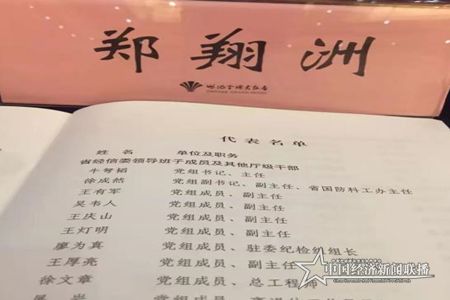 郑翔洲
代表名单
姓名 单位及职务
省经信委领导班子成员及其他厅级干部
牛弩韬 党组书记、主任
徐成然 党组副书记、副主任、省国防科工办主任
王有军 党组成员、副主任
吴韦人 党组成员、副主任
王庆山 党组成员、副主任
王灯明 党组成员、副主任
廖为真 党组成员、驻委纪检组组长
王厚亮 党组成员、副主任
徐文章 党组成员、总工程师
中国经济新闻联播